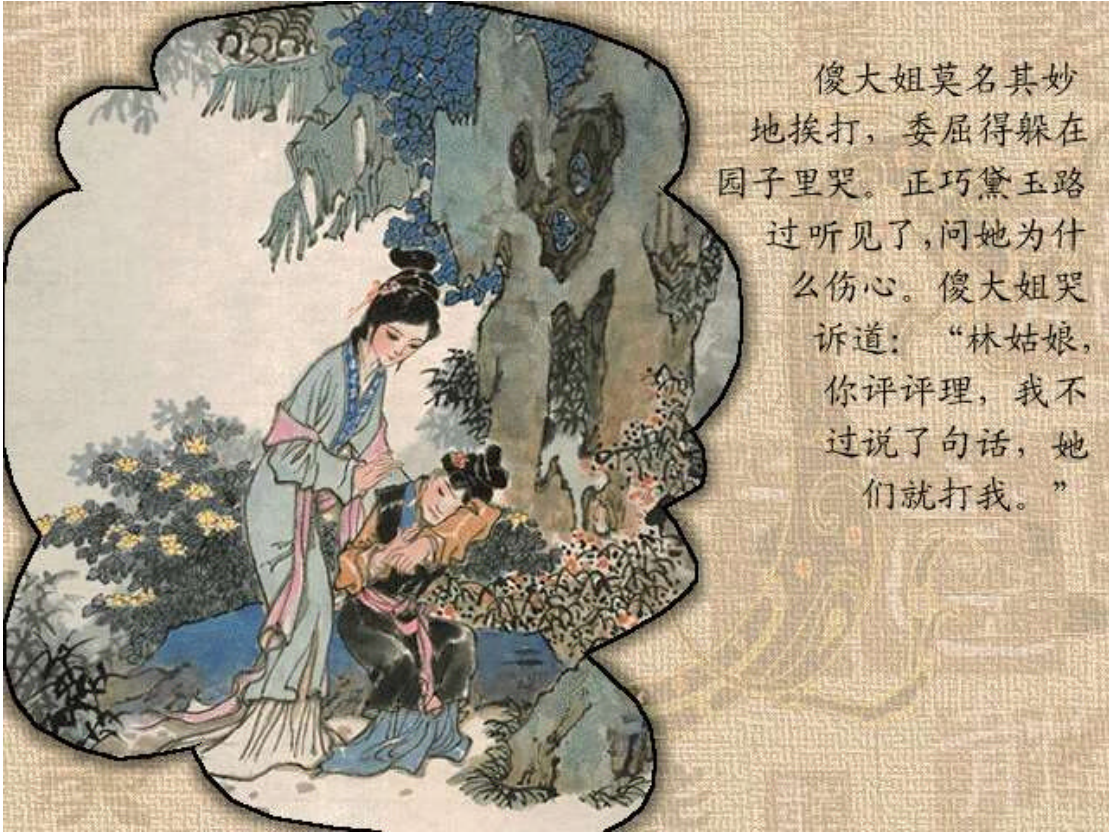 傻大姐莫名其妙
地挨打，委屈得躲在
园子里哭。正巧黛玉路
过听见了,问她为什
么伤心。傻大姐哭
诉道：“林姑娘，
你评评理，我不
过说了句话，她
们就打我。”